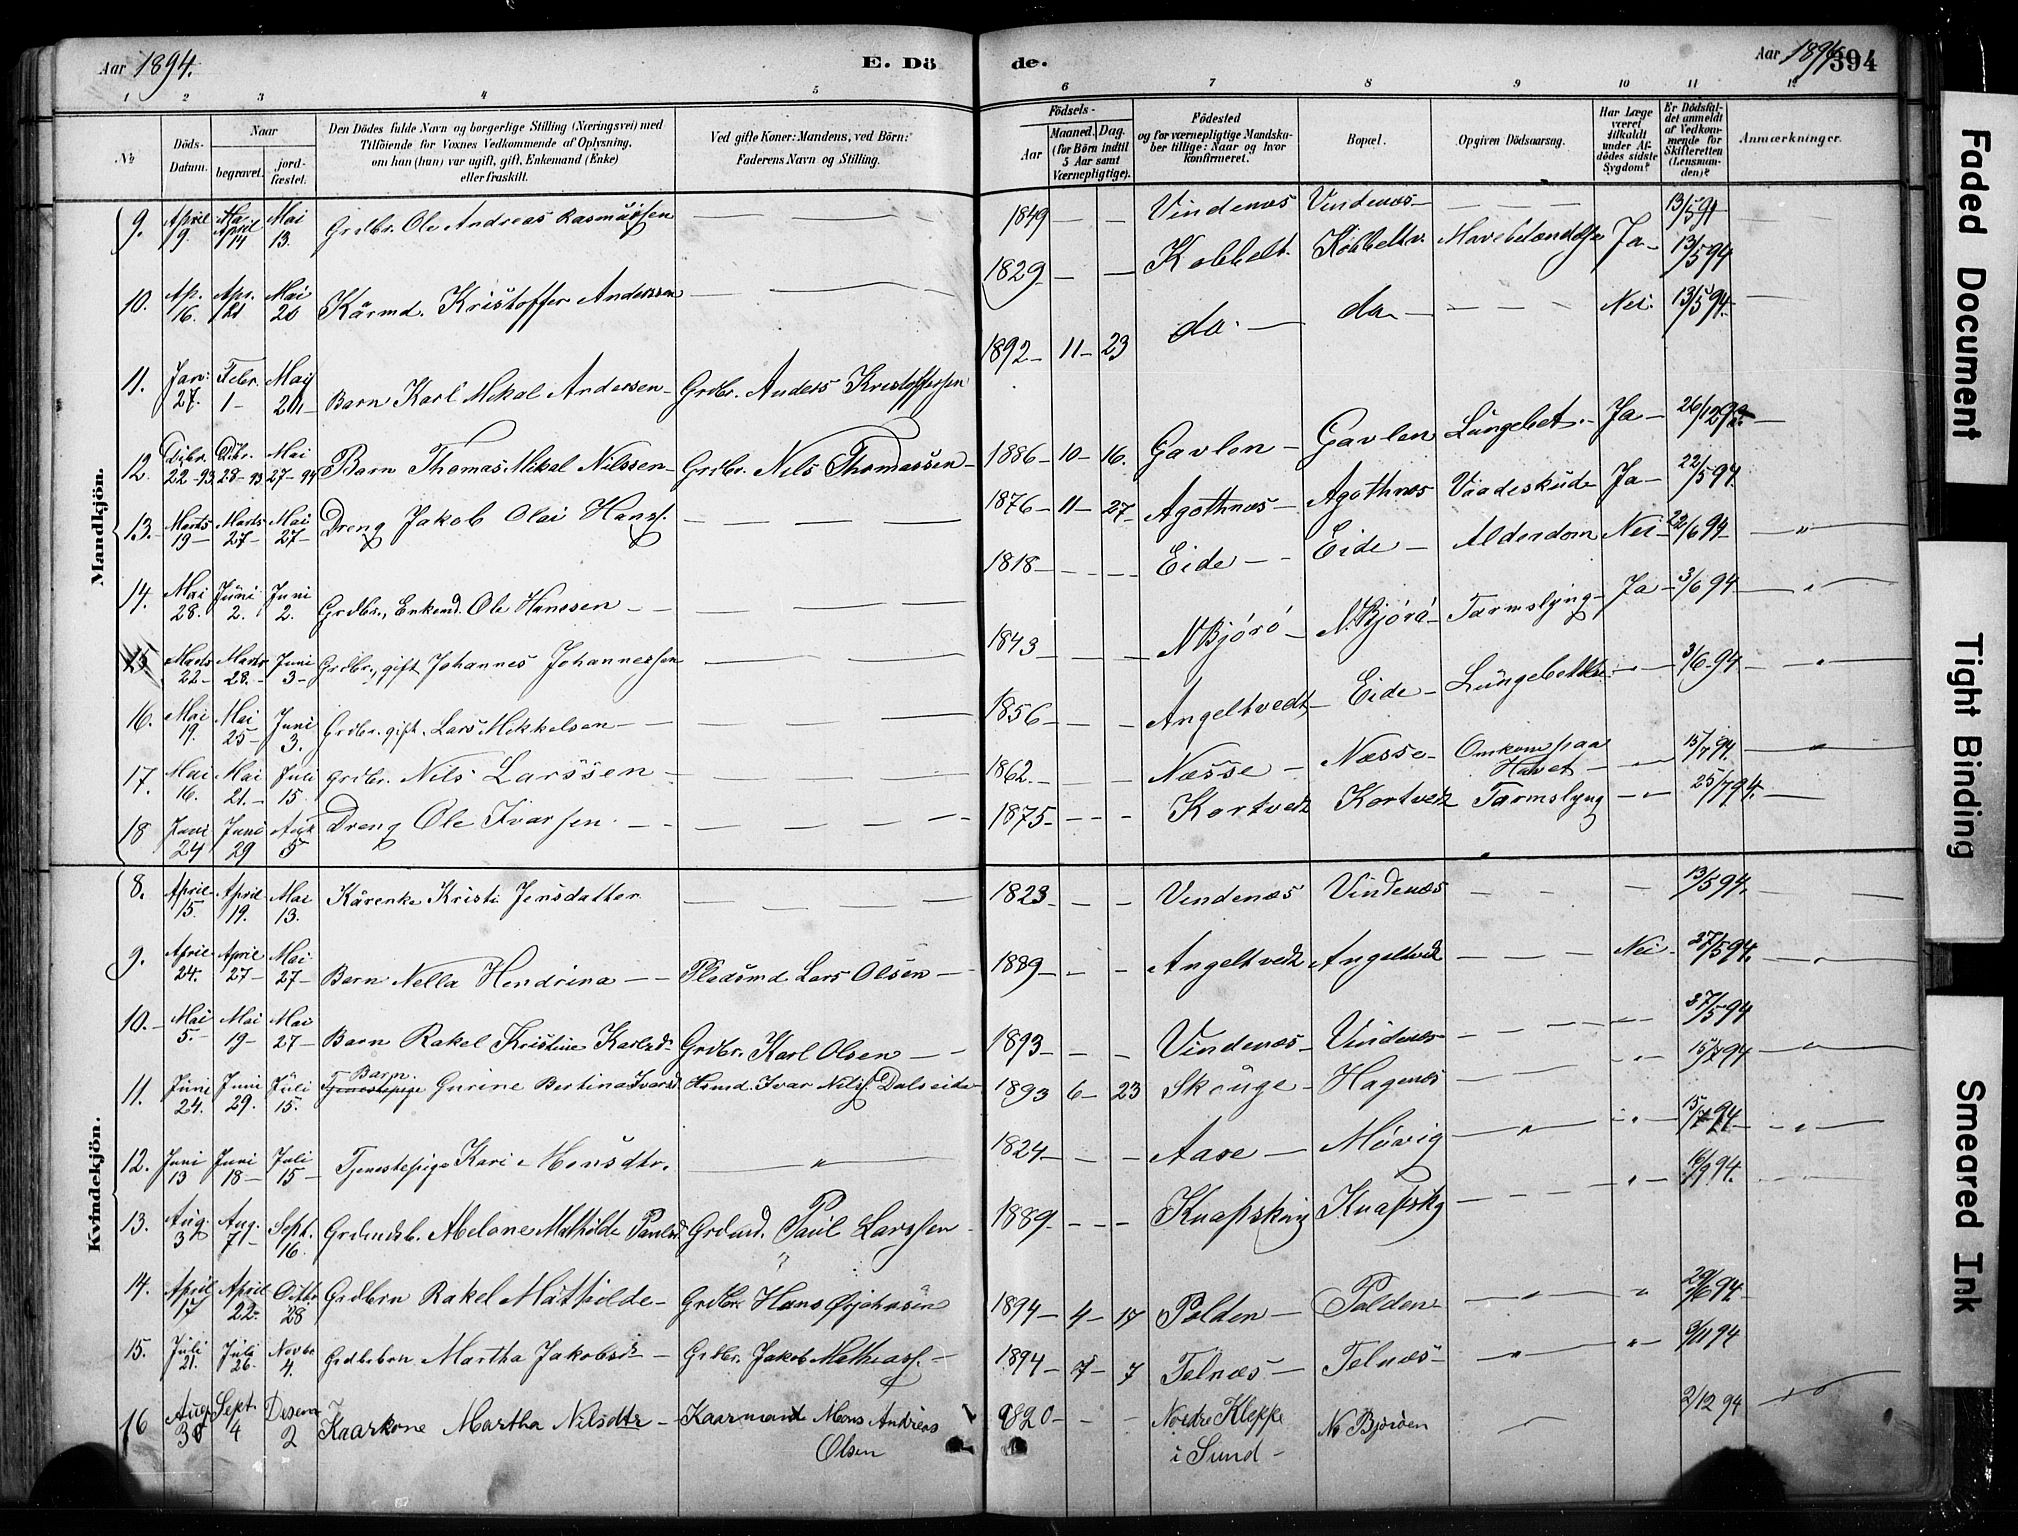 Aar 1894.
E. Dö
de.
Aar 1894
394
1 2 3 4 5 6 7 8 9 10 11 12
№
Döds-Datum.
Naar
begravet.
jord-fæstet.
Den Dödes fulde Navn og borgerlige Stilling (Næringsvei) med
Tilföiende for Voxnes Vedkommende af Oplysning,
om han (hun) var ugift, gift, Enkemand (Enke)
eller fraskilt.
Ved gifte Koner: Mandens, ved Börn:
Faderens Navn og Stilling.
Födsels-
Aar
Maaned. Dag.
(for Börn indtil
5 Aar samt
Værnepligtige).
Födested
og for værnepligtige Mandska-
ber tillige: Naar og hvor
konfirmeret.
Bopæl.
Opgiven Dödsaarsag.
Har Læge
været
tilkaldt
under Af-
dödes sidste
Sygdom?
Er Dödsfal-
det anmeldt
af Vedkom-
mende for
Skifteretten
(Lensman-
den)?
Anmærkninger.
Mandkjön.
9. April 9. April 14 Mai 13. Grdbr. Ole Andreas Rasmussen 1849 Vindenæs Vindenæs 13/5 94
10. Ap. 16. Apr. 21 Mai 20 Kårmd. Kristoffer Anderssen 1829 Kobbelt. Kobbeltv. Mavebetændelse Ja 13/5 94
11. Jan: 27. Febr. 1 Mai 20 Barn Karl Mikal Andersen Grdbr. Anders Kristoffersen 1892 11 23 do. do Nei 13/5 94
12. Dcbr. 22-93 Dcbr. 28-93 Mai 27-94 Barn Thomas Mikal Nilssen Grdbr. Nils Thomassen 1886 10 16. Gavlen Gavlen Lungebet. Ja
13. Marts 19 Marts 27 Mai 27 Dreng Jakob Olai Hanss. 1876 11 27 Agothnæs Agothnæs Vaadeskud Ja 22/5 94
14. Mai 28. Juni 2. Juni 2. Grdbr., Enkemd. Ole Hanssen 1818 Eide Eide Alderdom Nei 22/6 94 "
15 Marts 22 Marts 28. Juni 3 Grdbr., gift Johannes Johannessen 1843 N Bjórö N. Bjórö Tarmslyng Ja 3/6 94 "
16. Mai 19. Mai 25 Juni 3. Grdbr. gift. Lars Mikkelsen 1856 Angeltvedt Eide " 3/6 94 "
17. Mai 16. Mai 21. Juli 15 grdbr. Nils Larssen 1862. Næsse Næsse Omkom paa Havet " 15/7 94. "
18 Juni 24 Juni 29 Aug 5 Dreng Ole Ivarsen. 1875 Kortvedt Kortvedt Tarmslyng " 25/7 94.
Kvindekjön.
8. April 15. April 19. Mai 13. Kårenke Kristi Jensdatter 1823 Vindenæs Vindenæs 13/5 94.
9. April 24. April 27 Mai 27 Barn Nella Hendrina Pladsmd Lars Olsen 1889 Angeltvedt Angeltvedt Nei 27/5 94. "
10. Mai 5. Mai 19 Mai 27 Barn Rakel Kristine Karlsd Grdbr. Karl Olsen 1893 Vindenæs Vindenæs " 27/5 94
11. Juni 24. Juni 29. Juli 15. Barn Tjenestepige Gurine Bertina Ivarsd Hsmd. Ivar Nilss. Dalseide 1893 6 23 Skouge Hagenæs " 15/7 94 "
12. Juni 13 Juni 18 Juli 15 Tjenestepige Kari Monsdtr. " 1824 Aase Móvig " " 15/7 94 "
13. Aug. 3 Aug. 7 Sept. 16. Melone Mathilde Paulsd Paul Larssen 1889 Knapskog Knapskg " 16/9 94.
14. April 17 April 22. Octbr 28 Grdbrn Rakel Mathilde Grdbr Hans 1894 4 17 Polden Polden " " 29/6 94.
15. Juli 21. Juli 26. Novbr 4. Grdbrbrn Martha Jakobsd Grdbr. Jakob Mathiass. 1894 7 7 Telnæs Telnæs " " 3/11 94
16 Aug 30 Sept 4 Desem 2 Kaarkone Martha Nilsdtr Kaarmand Mons Andreas Olsen 1820 Nordre Kleppe i Sund No Björöen 2/12 94
Faded Document
Tight Binding
Smeared Ink